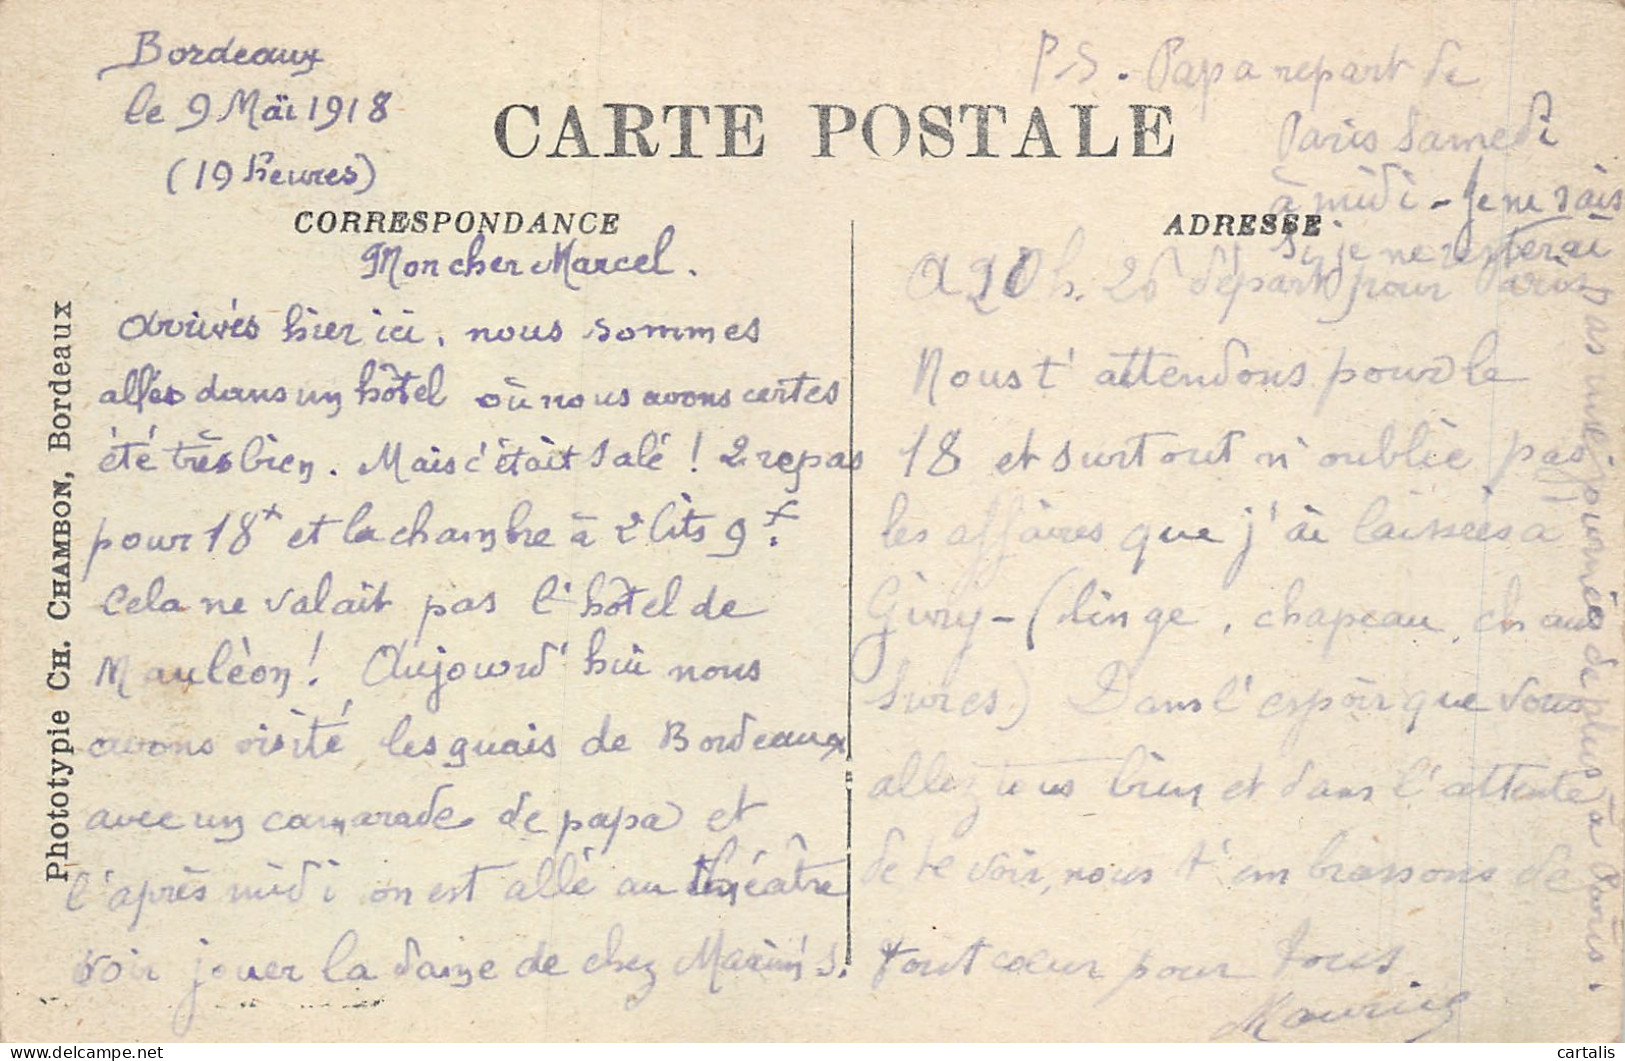 Bordeaux
le 9 Mai 1918
(19 heures)
CARTE POSTALE
CORRESPONDANCE
Mon cher Marcel.
Arrivés hier ici, nous sommes
allés dans un hôtel où nous avons certes
été très bien. Mais c'était salé ! 2 repas
pour 18 f et la chambre à 2 lits 9 f.
Cela ne valait pas l'hôtel de
Mauléon ! Aujourd'hui nous
avons visité les quais de Bordeaux
avec un camarade de papa et
l'après midi on est allé au théâtre
voir jouer la dame de chez Maxim's.
ADRESSE
A 20 h. 26 départ pour Paris
Nous t'attendons pour le
18 et surtout n'oublie pas
les affaires que j'ai laissées à
Givry - (linge, chapeau, chaus
sures) Dans l'espoir que vous
allez tous bien et dans l'attente
de te voir, nous t'embrassons de
tout cœur pour tous
Maurice
P.S. Papa repart de
Paris Samedi
à midi - Je ne sais
si je ne resterai
pas une journée de plus à Paris.
Phototypie CH. CHAMBON, Bordeaux
cartalis